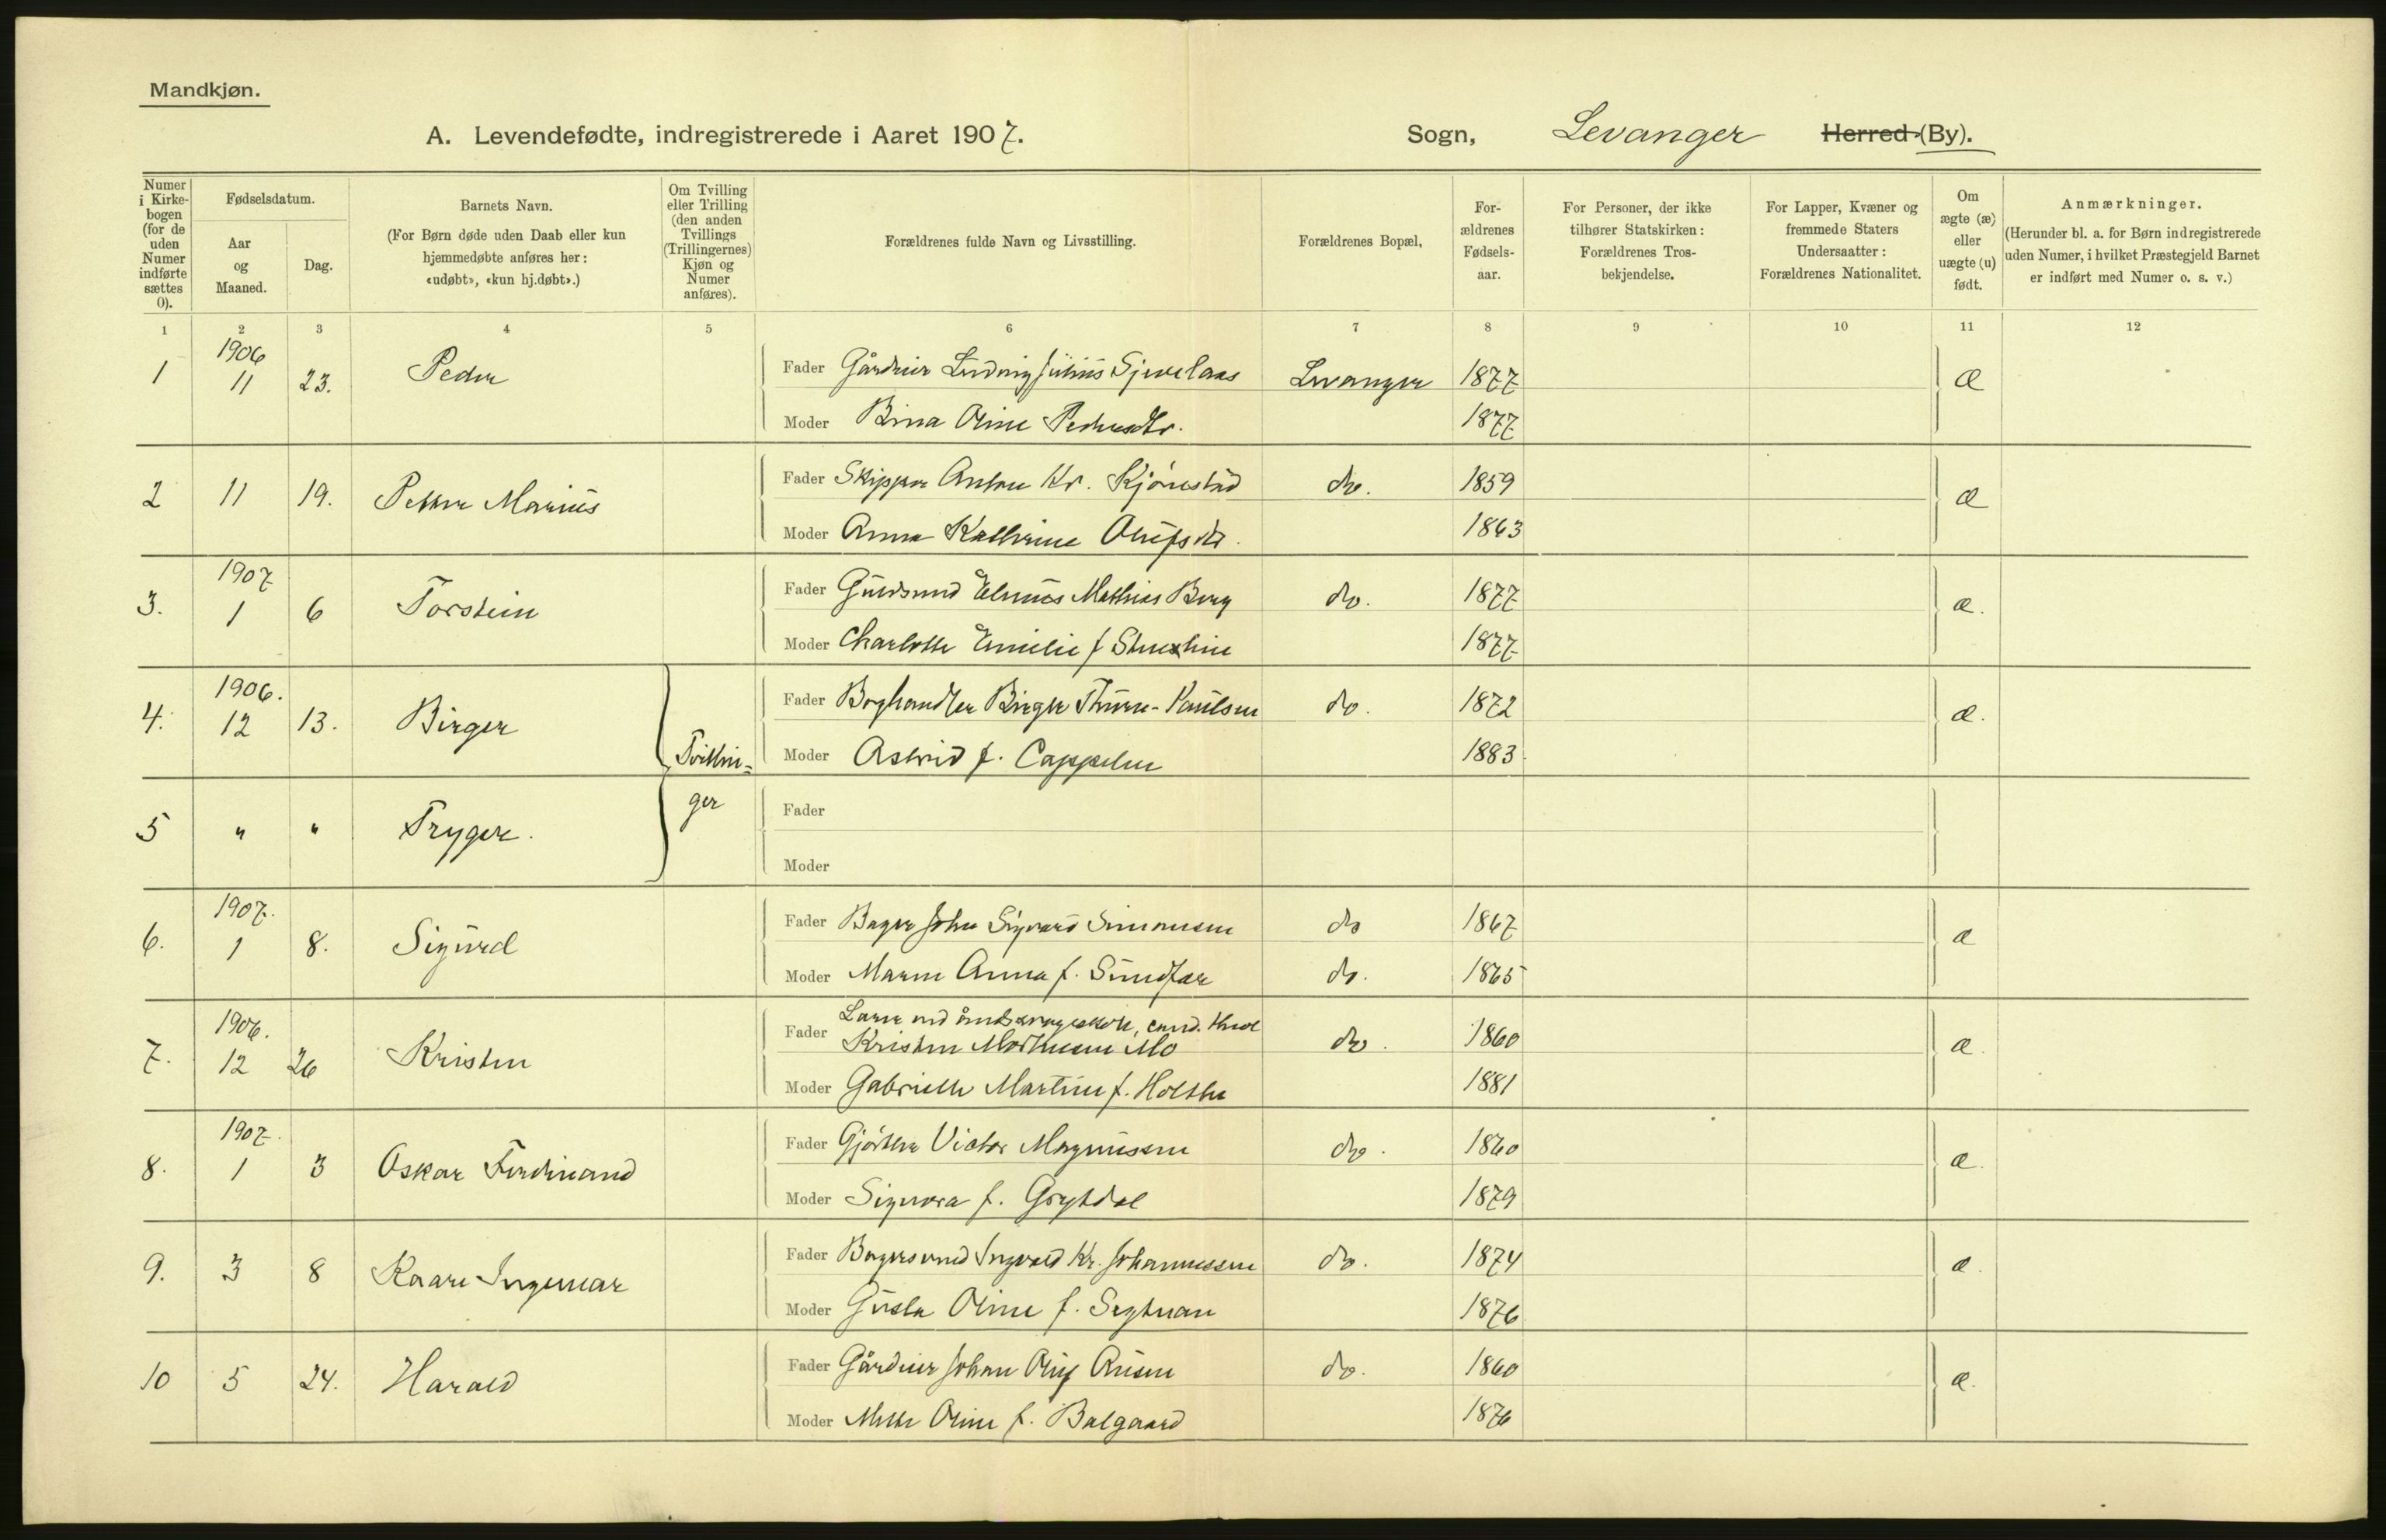 Mandkjøn.
A. Levendefødte, indregistrerede i Aaret 1907. Sogn, Levanger Herred (By).
Numer i Kirkebogen (for de uden Numer indførte sættes 0).
Fødselsdatum.
Aar og Maaned.
Dag.
Barnets Navn.
(For Børn døde uden Daab eller kun hjemmedøbte anføres her: «udøbt», «kun hj.døbt».)
Om Tvilling eller Trilling (den anden Tvillings (Trillingernes) Kjøn og Numer anføres).
Forældrenes fulde Navn og Livsstilling.
Forældrenes Bopæl,
Forældrenes Fødselsaar.
For Personer, der ikke tilhører Statskirken: Forældrenes Trosbekjendelse.
For Lapper, Kvæner og fremmede Staters Undersaatter: Forældrenes Nationalitet.
Om ægte (æ) eller uægte (u) født.
Anmærkninger.
(Herunder bl. a. for Børn indregistrerede uden Numer, i hvilket Præstegjeld Barnet er indført med Numer o. s. v.)
1 2 3 4 5 6 7 8 9 10 11 12
1906
1 11 23. Peder Fader Gårdeier Ludvig Julius Levanger 1877 æ
Moder Bina Oline Pedersdtr. 1877
2 11 19. Petter Marius Fader Skipper Anton Kr. Kjönstad do. 1859 æ
Moder Anna Kathrine Olufsdtr. 1863
1907
3. 1 6 Torstein Fader Guldsmed Elenus Mathias Berg do. 1877 æ.
Moder Charlotte Emilie f 1877
1906.
4. 12 13. Birger Fader Boghandler Birger Thurn-Paulsen do. 1872 æ.
Tvillin= Moder Astrid f. Cappelen 1883.
ger
5 " " Trygve. Fader
Moder
1907.
6. 1 8. Sigurd Fader Bager John Sigvard Simonsen do 1867 æ
Moder Maren Anna f. Sundfær do. 1865
1906. Lærer ved amtsskole, cand. theol
7. 12 26 Kristen Fader Kristen Mortensen Mo do. 1860 æ.
Moder Gabrielle Martine f. Holthe 1881
1907.
8. 1 3 Oskar Ferdinand Fader Gjörtler Victor Magnussen do. 1860 æ.
Moder Signora f. Grytdal 1879
9. 3 8 Kaare Ingemar Fader Bagersvend Ingvald Kr. Johannessen do. 1874 æ.
Moder Gusta Oline f. Segtnan 1876
10 5 24. Harald Fader Gårdeier Johan Oluf Olsen do. 1860 æ.
Moder Mette Oline f. Balgaard 1876